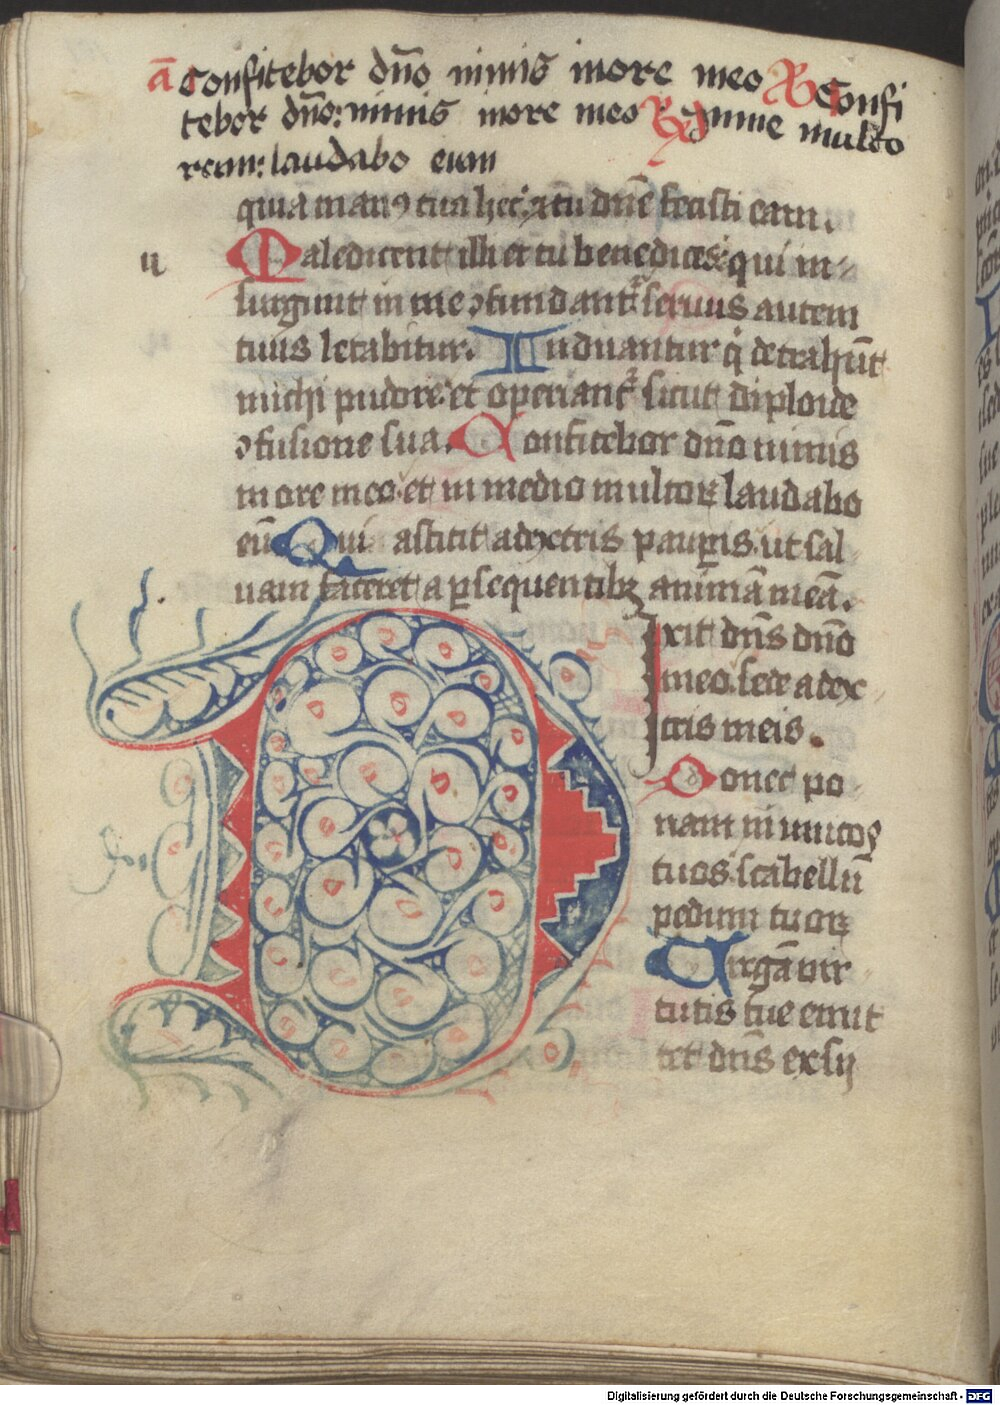 a Confitebor dño nimis in ore meo R Confi
tebor dño: nimis in ore meo
laudabo eum
quia man⁹ tua hec: ⁊ tu dñe fecisti eam.
n
Maledicent illi et tu benedices: qui in-
surgunt in me ɔfundant᷑ seruus autem
tuus letabitur. Induantur q̇ detrahūt
michi pudore: et operiant᷑ sicut diploide
ɔfusione sua. Confitebor dño nimis
in ore meo: et in medio multoꝝ laudabo
eū Qui astitit adextris paupis: ut sal
uam faceret a ꝑsequentibꝫ animā meā.
Dixit dñs dño
meo. sede a dex
tris meis.
Donec po
nam inimicos
tuos. scabellū
pedum tuoꝝ
Uirgā vir
tutis tue emit
tet dñs ex sy
Digitalisierung gefördert durch die Deutsche Forschungsgemeinschaft - DFG